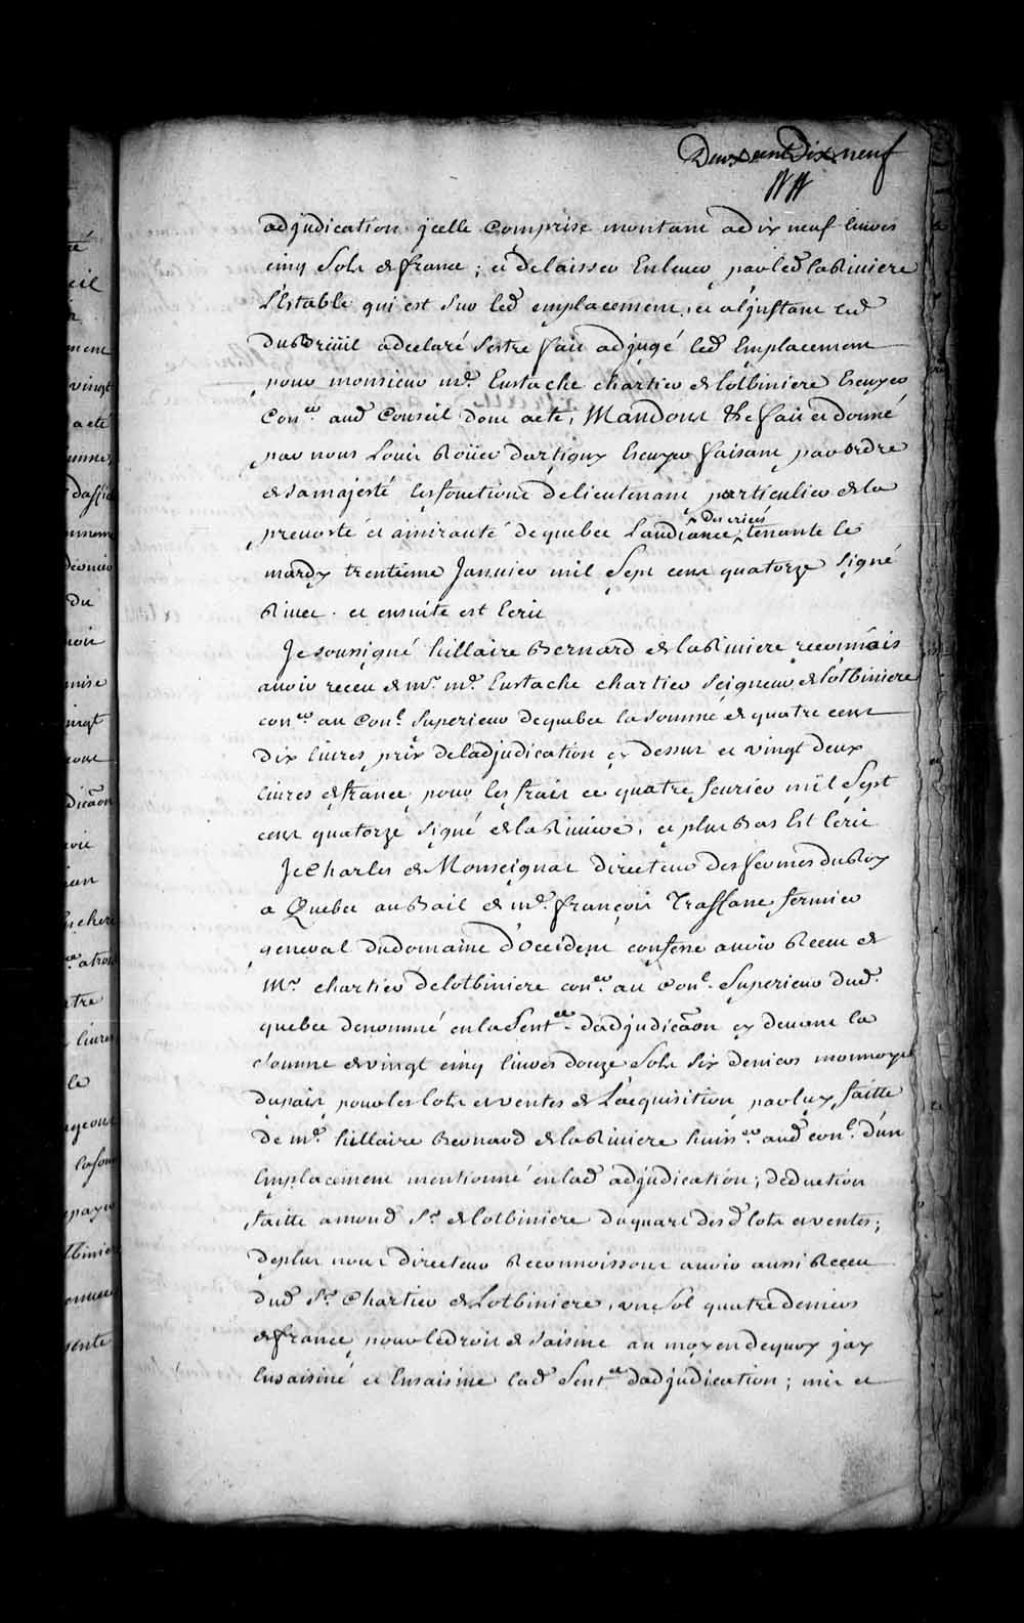 Deux cent Dix neuf
adjudication jcelle Comprise montant a dix neuf liures
cinq Sols de france ; et delaisser Enleuer par led. laRiuiere
L'Estable qui est Sur led. emplacement, et a l'jnstant led.
duBreüil a declaré s'estre fait adjugé led. Emplacement
pour monsieur me. Eustache chartier de lotbiniere Escuyer
Conser. aud. Conseil dont acte, Mandons &c fait et donné
par nous Louis Roüer dartigny Escuyer faisant par ordre
de sa majesté les fonctions de lieutenant particulier de la
preuosté et amirauté de quebec L'audiance des criées tenante le
mardy trentieme Januier mil Sept cent quatorze Signé
Riuet . et ensuite est Ecrit
Je soussigné hillaire Bernard de laRiuiere reconnois
auoir receu de mr. me. Eustache chartier Seigneur de lotbiniere
coner. au Conl. Superieur de quebec la somme de quatre cent
dix liures prix de ladjudication cy dessus et vingt deux
liures de france pour les frais ce quatre feurier mil Sept
cent quatorze Signé de laRiuiere, et plus Bas Est Ecrit
Je Charles de Monseignat directeur des fermes du Roy
a Quebec au Bail de me. françois Traffane fermier
general du domaine d'Occident confesse auoir Receu de
Mr. chartier de lotbiniere coner. au Conl. Superieur dud.
quebec denommé en la Sentce. dadjudicaõn cy deuant la
somme de vingt cinq liures douze Sols Six deniers monnoye
du pais pour les lots et ventes de L'acquisition par luy faitte
de me. hillaire Bernard de laRiuiere huiser. aud. conl. d'un
Emplacement mentionné en lad. adjudication ; deduction
faitte a mond. Sr. de lotbiniere du quart desd. lots et ventes ;
de plus nous directeur Reconnoissons auoir aussi Receu
dud. Sr. Chartier de Lotbiniere, vn Sol quatre deniers
de france pour le droit de saisine au moyen de quoy jay
Ensaisiné et Ensaisine lad. Sentce. dadjudication ; mis et